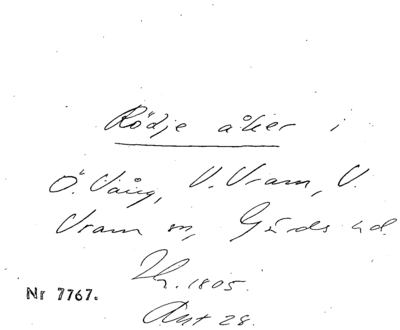 Rödje åker i
Ö. Vång, V. Vram, V.
Vram sn, Gärds hd.
1805.
Nr 7767.
Akt 28.